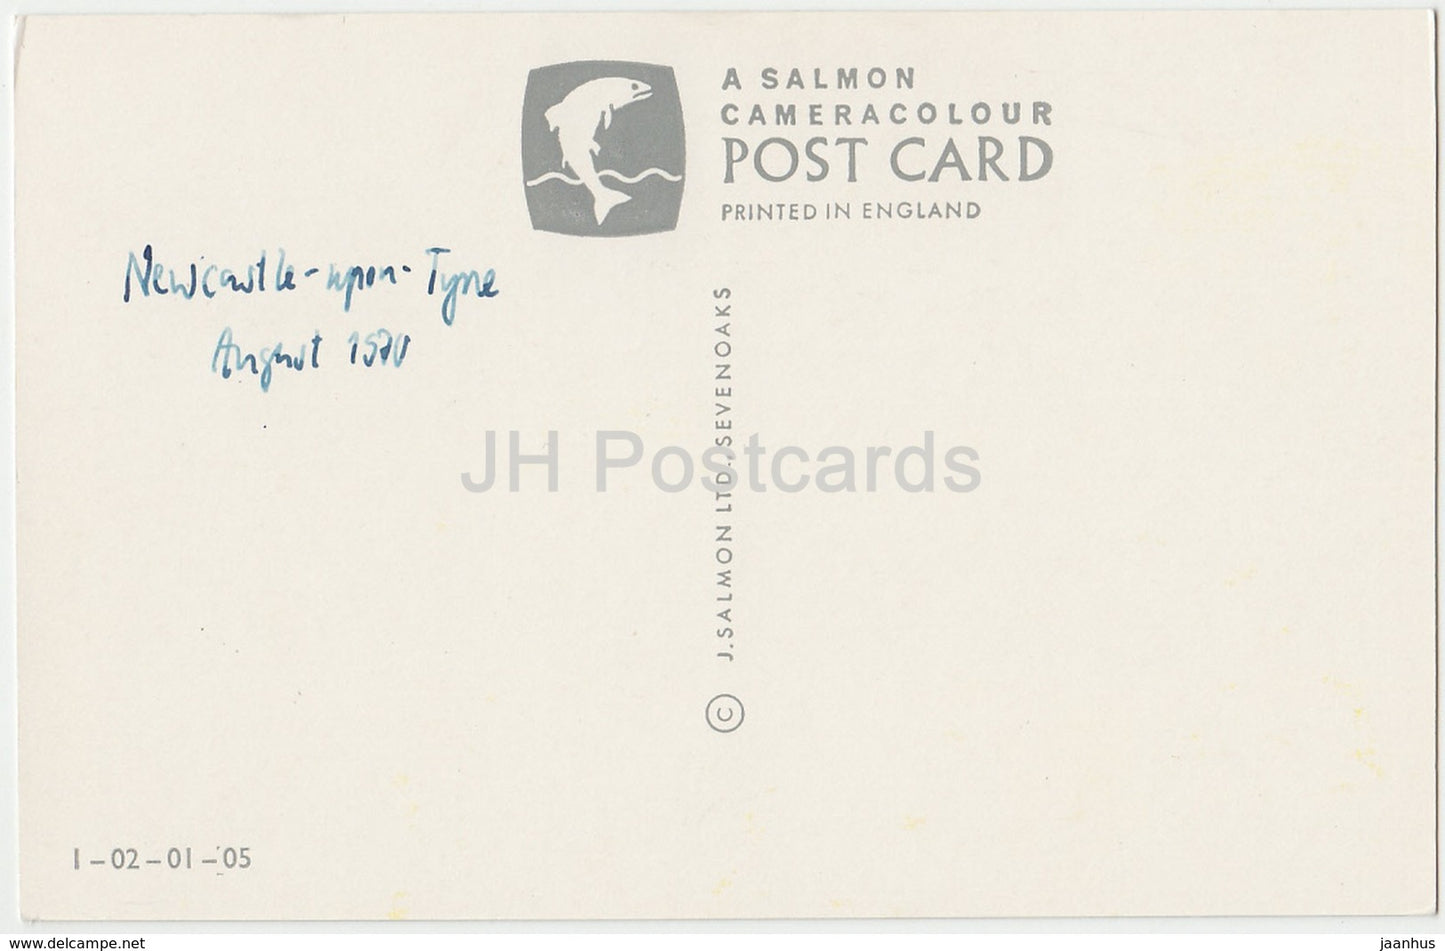 A SALMON
CAMERACOLOUR
POST CARD
PRINTED IN ENGLAND
Newcastle-upon-Tyne
August 1970
© J. SALMON LTD., SEVENOAKS
JH Postcards
1-02-01-05
www.delcampe.net
jaanhus